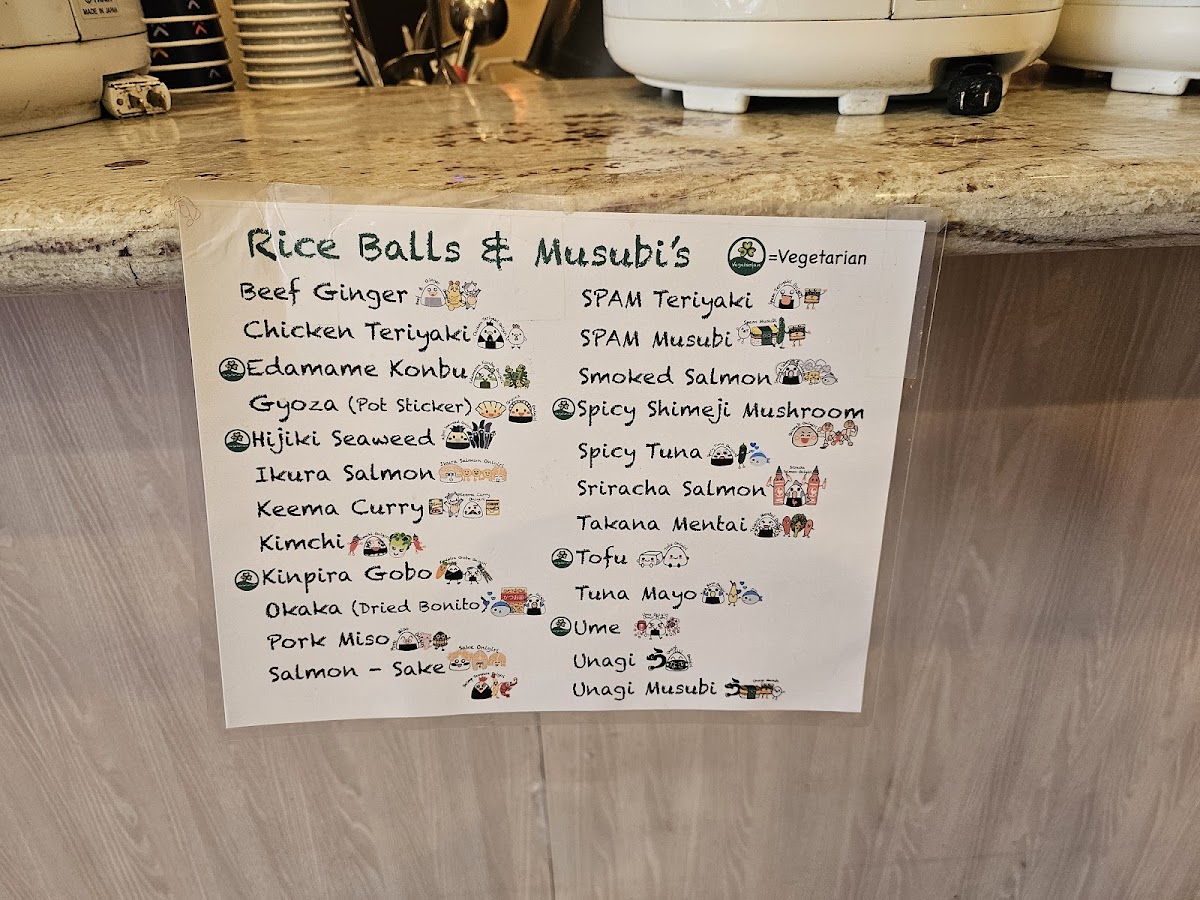 MADE IN JAPAN
Rice Balls & Musubi's
Vegetarian
=Vegetarian
Beef Ginger
Chicken Teriyaki
Edamame Konbu
Gyoza (Pot Sticker)
Hijiki Seaweed
Ikura Salmon
Keema Curry
Kimchi
Kinpira Gobo
Okaka (Dried Bonito)
Pork Miso
Salmon - Sake
SPAM Teriyaki
SPAM Musubi
Smoked Salmon
Spicy Shimeji Mushroom
Spicy Tuna
Sriracha Salmon
Takana Mentai
Tofu
Tuna Mayo
Ume
Unagi う
Unagi Musubi う